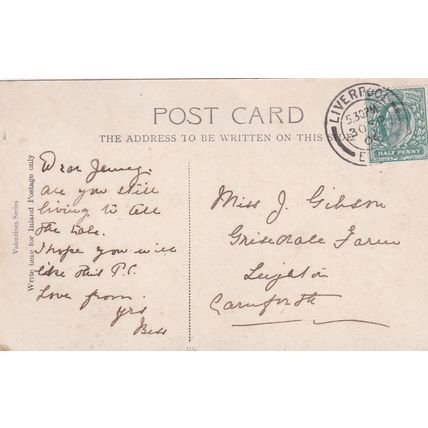 POST CARD
THE ADDRESS TO BE WRITTEN ON THIS SIDE
LIVERPOOL
5.30 PM
E
HALF PENNY
Valentines Series
Write here for Inland Postage only
Dear Jenny.
are you still
living to tell
the tale.
I hope you will
like this P.C.
Love from.
yrs
Bess
Miss J. Gibson
Grisedale Farm
Leighton
Carnforth